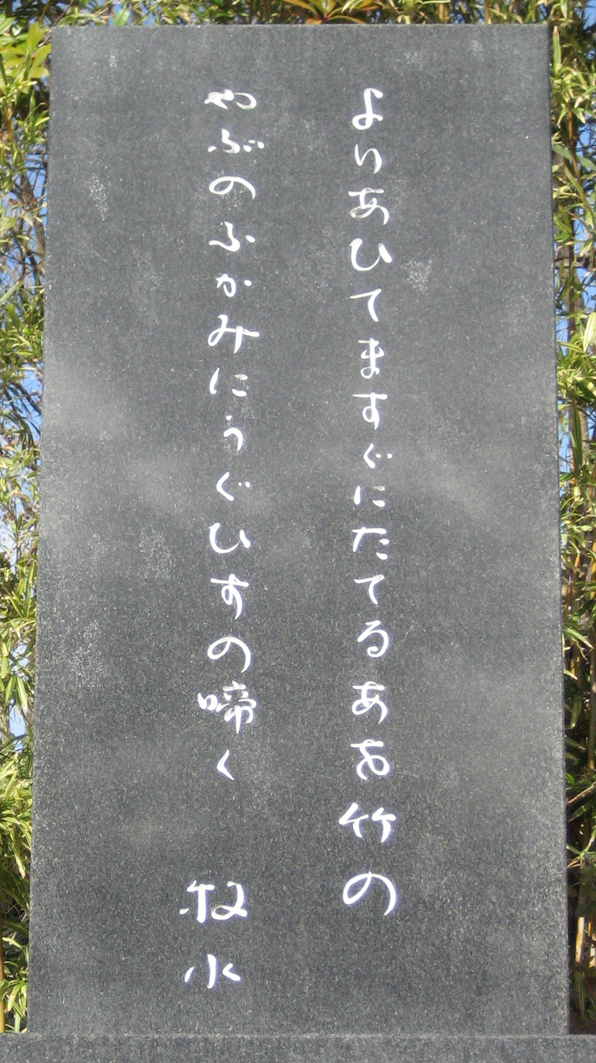 よりあひてますぐにたてるあを竹の
やぶのふかみにうぐひすの啼く
牧水